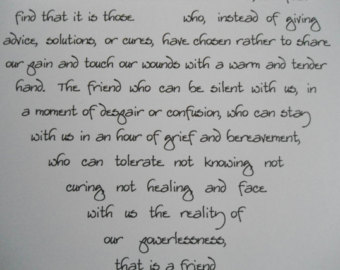 find that it is those who, instead of giving
advice, solutions, or cures, have chosen rather to share
our pain and touch our wounds with a warm and tender
hand. The friend who can be silent with us, in
a moment of despair or confusion, who can stay
with us in an hour of grief and bereavement,
who can tolerate not knowing not
curing not healing and face
with us the reality of
our powerlessness,
that is a friend